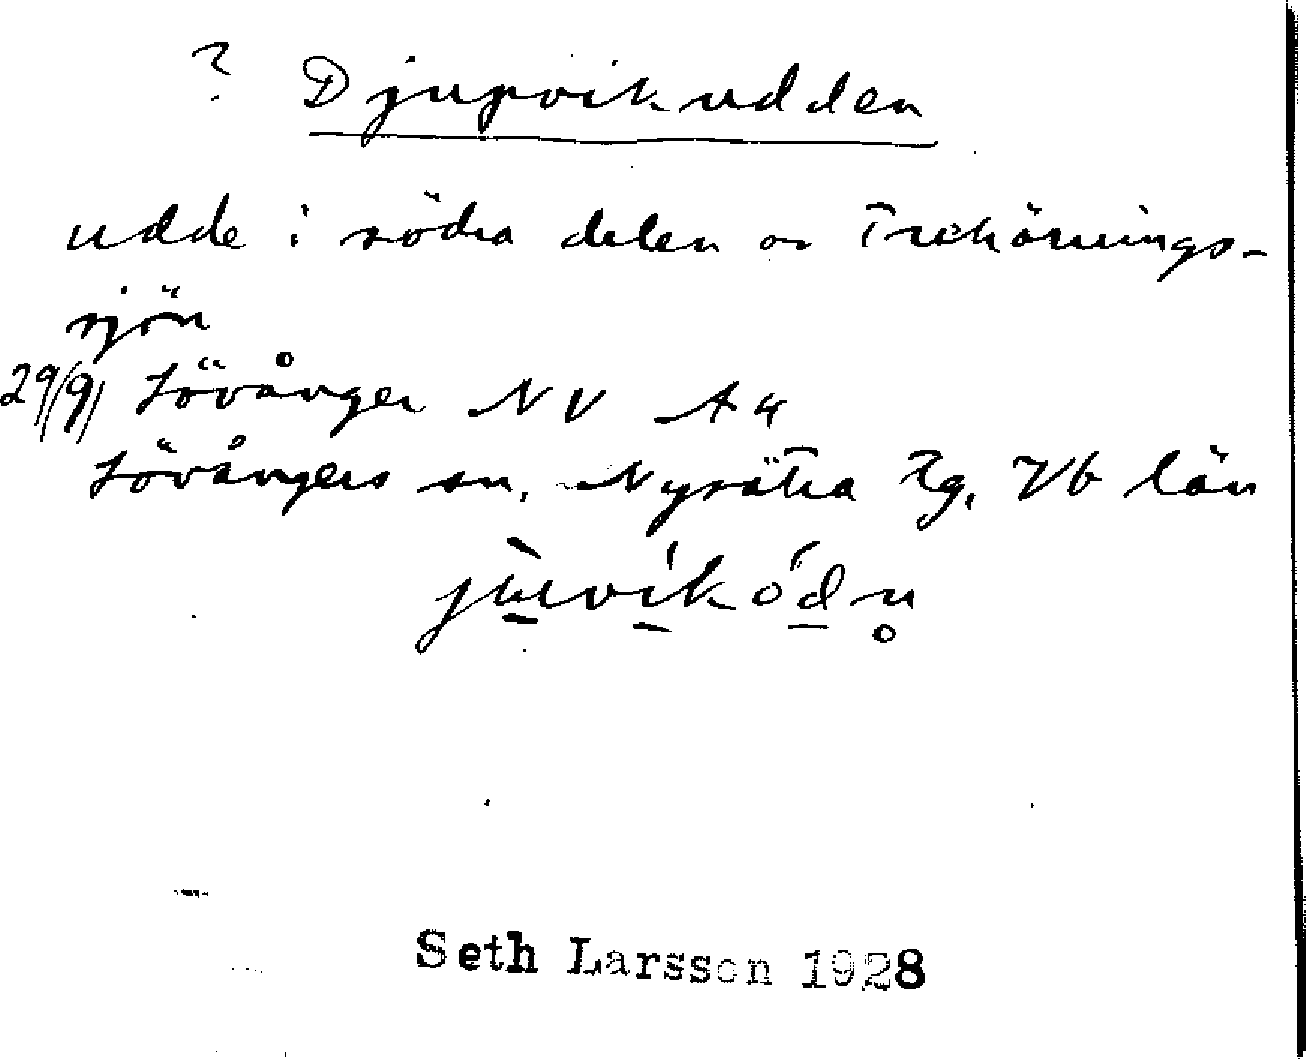 ? Djupvikudden
udde i södra delen av Trehörnings-
sjön
29/9 Lövånger NV A4
Lövångers sn, Nysätra tg, Vb län
juvikódn
Seth Larsson 1928